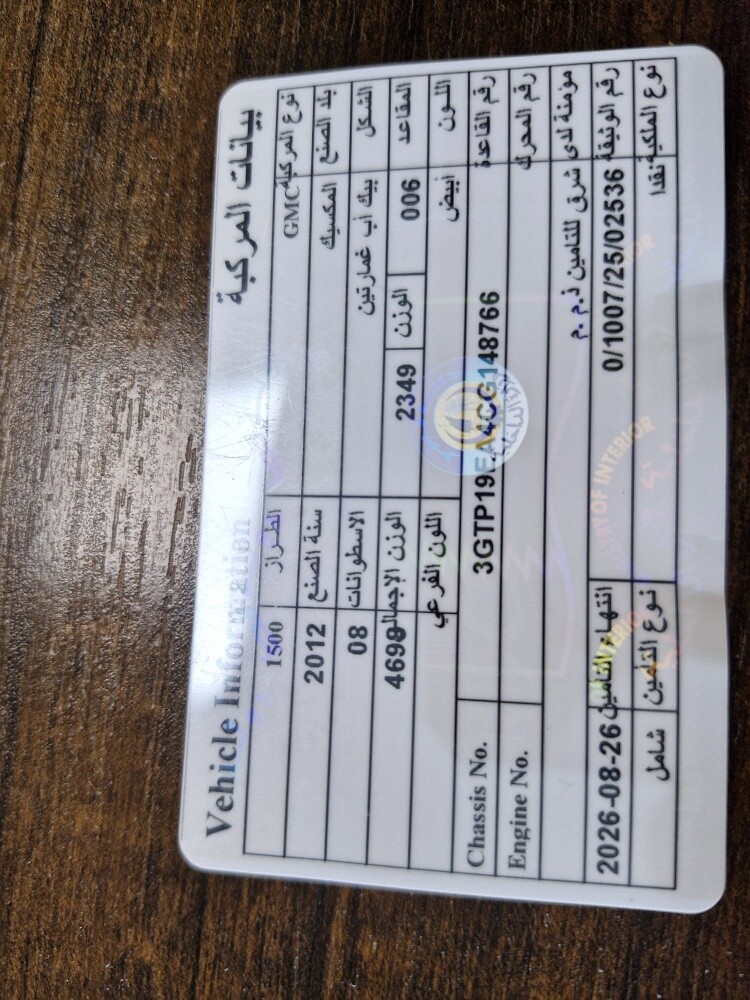 Vehicle Information بيانات المركبة
نوع المركبة GMC الطراز 1500
بلد الصنع المكسيك سنة الصنع 2012
الشكل بيك أب غمارتين الاسطوانات 08
المقاعد 006 الوزن 2349 الوزن الإجمالي 4698
اللون أبيض اللون الفرعي
رقم القاعدة 3GTP19EA4CG148766 Chassis No.
رقم المحرك Engine No.
مؤمنة لدى شرق للتامين ذ.م.م
رقم الوثيقة 0/1007/25/02536 انتهاء التامين 2026-08-26
نوع الملكية نقدا نوع التامين شامل
MINISTRY OF INTERIOR